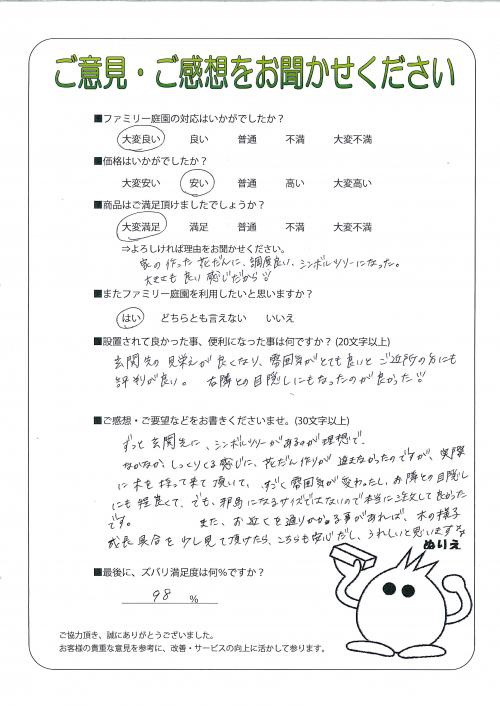 ご意見・ご感想をお聞かせください
■ファミリー庭園の対応はいかがでしたか？
大変良い 良い 普通 不満 大変不満
■価格はいかがでしたか？
大変安い 安い 普通 高い 大変高い
■商品はご満足頂けましたでしょうか？
大変満足 満足 普通 不満 大変不満
⇒よろしければ理由をお聞かせください。
家の作った花だんに、調度良い、シンボルツリーになった。
大きさも良い感じだから
■またファミリー庭園を利用したいと思いますか？
はい どちらとも言えない いいえ
■設置されて良かった事、便利になった事は何ですか？(20文字以上)
玄関先の見栄えが良くなり、雰囲気がとても良いとご近所の方にも
評判が良い。 右隣との目隠しにもなったのが良かった!!
■ご感想・ご要望などをお書きくださいませ。(30文字以上)
ずっと玄関先に、シンボルツリーがあるのが理想で、
なかなか、しっくりくる感じに、花だん作りが進まなかったのですが、実際
に木を持って来て頂いて、すごく雰囲気が変わったし、お隣との目隠し
にも程良くて、でも、邪魔になるサイズではないので本当に注文して良かった
です。 また、お近くを通りかかる事があれば、木の様子
成長具合を少し見て頂けたら、こちらも安心だし、うれしいと思います
ぬりえ
■最後に、ズバリ満足度は何％ですか？
98 %
ご協力頂き、誠にありがとうございました。
お客様の貴重な意見を参考に、改善・サービスの向上に活かして参ります。